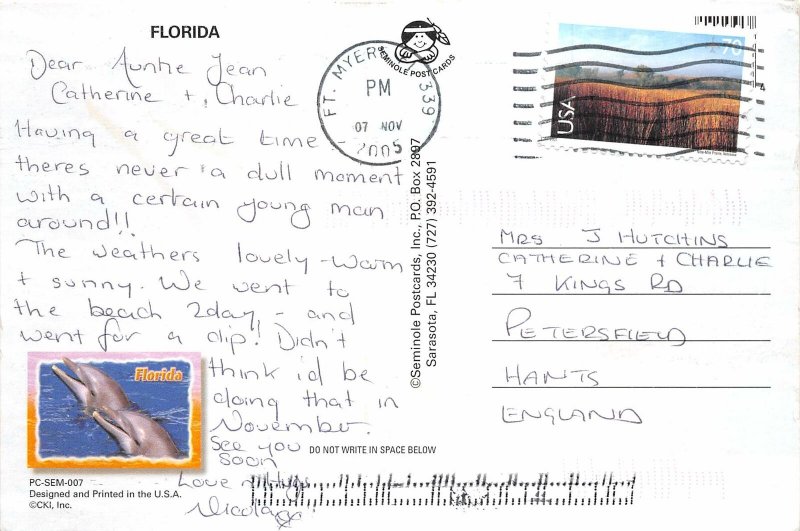 FLORIDA
Dear Auntie Jean
Catherine + Charlie
Having a great time -
theres never a dull moment
with a certain young man
around!!
The weathers lovely - warm
+ sunny. We went to
the beach 2day - and
went for a dip! Didn't
think i'd be
doing that in
November.
See you
soon
Love + Hugs
Nicola
Florida
PC-SEM-007
Designed and Printed in the U.S.A.
©CKI, Inc.
DO NOT WRITE IN SPACE BELOW
SEMINOLE POST CARDS
©Seminole Postcards, Inc., P.O. Box 2897
Sarasota, FL 34230 (727) 392-4591
FT. MYERS 339
PM
07 NOV
2005
70
USA
MRS J HUTCHINS
CATHERINE + CHARLIE
7 KINGS RD
PETERSFIELD
HANTS
ENGLAND